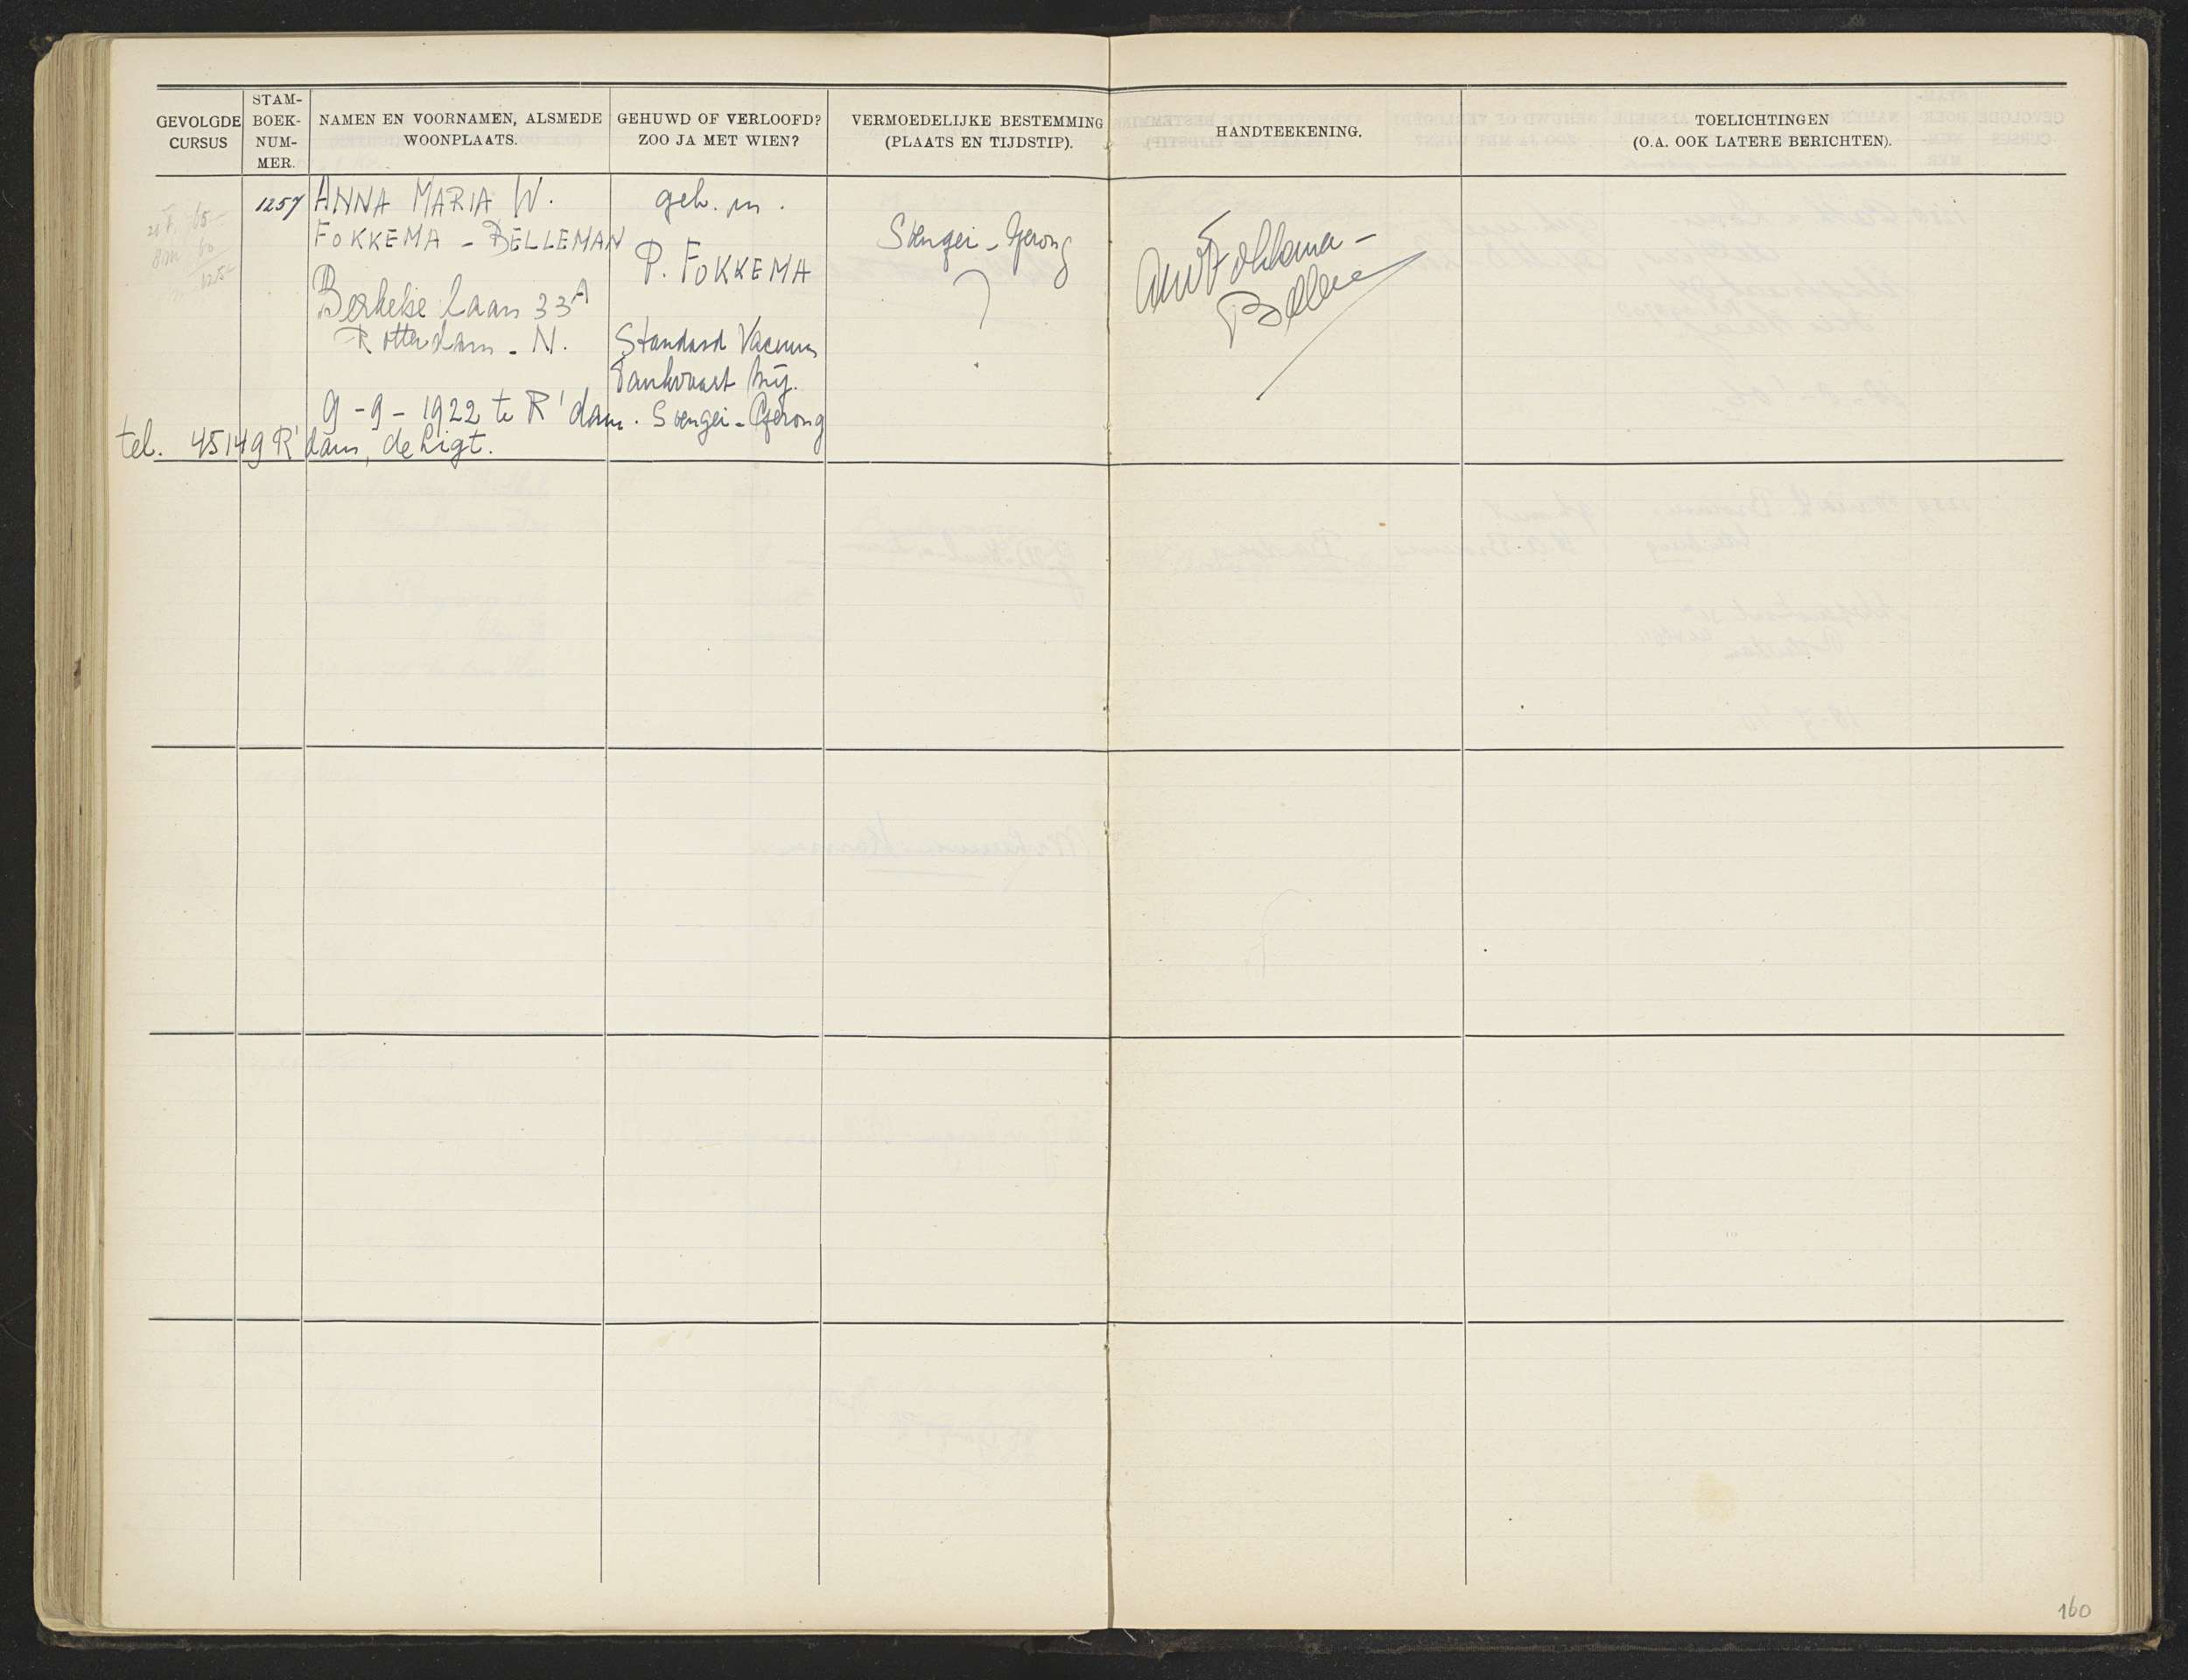 GEVOLGDE CURSUS
STAM-BOEK-NUM-MER.
NAMEN EN VOORNAMEN, ALSMEDE WOONPLAATS.
GEHUWD OF VERLOOFD? ZOO JA MET WIEN?
VERMOEDELIJKE BESTEMMING (PLAATS EN TIJDSTIP).
HANDTEEKENING.
TOELICHTINGEN (O.A. OOK LATERE BERICHTEN).
65-
60
125-
1257
ANNA MARIA W.
FOKKEMA - BELLEMAN
Berkelse Laan 33A
Rotterdam - N.
9-9-1922 te R'dam.
tel. 45149 R'dam, de Ligt.
geh. m.
P. FOKKEMA
Standard Vacuum
Tankvaart Mij.
Soengei-Gerong
Soengei-Gerong
?
AMW Fokkema-
Belleman
160